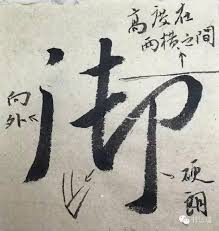 高度在
两横之間
御
向外
硬朗